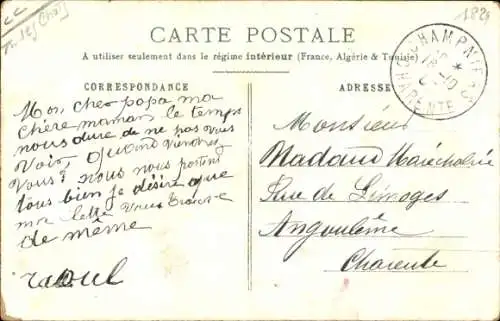 CARTE POSTALE
A utiliser seulement dans le régime intérieur (France, Algérie & Tunisie)
CORRESPONDANCE
ADRESSE
Mon cher papa ma
chère maman le temps
nous dure de ne pas vous
voir quand viendrez
vous? nous nous portons
tous bien je désire que
ma lettre vous trouve
de même
raoul
Monsieur
Madaud Maréchalerie
Rue de Limoges
Angoulême
Charente
CHAMPNIERS
CHARENTE
1829